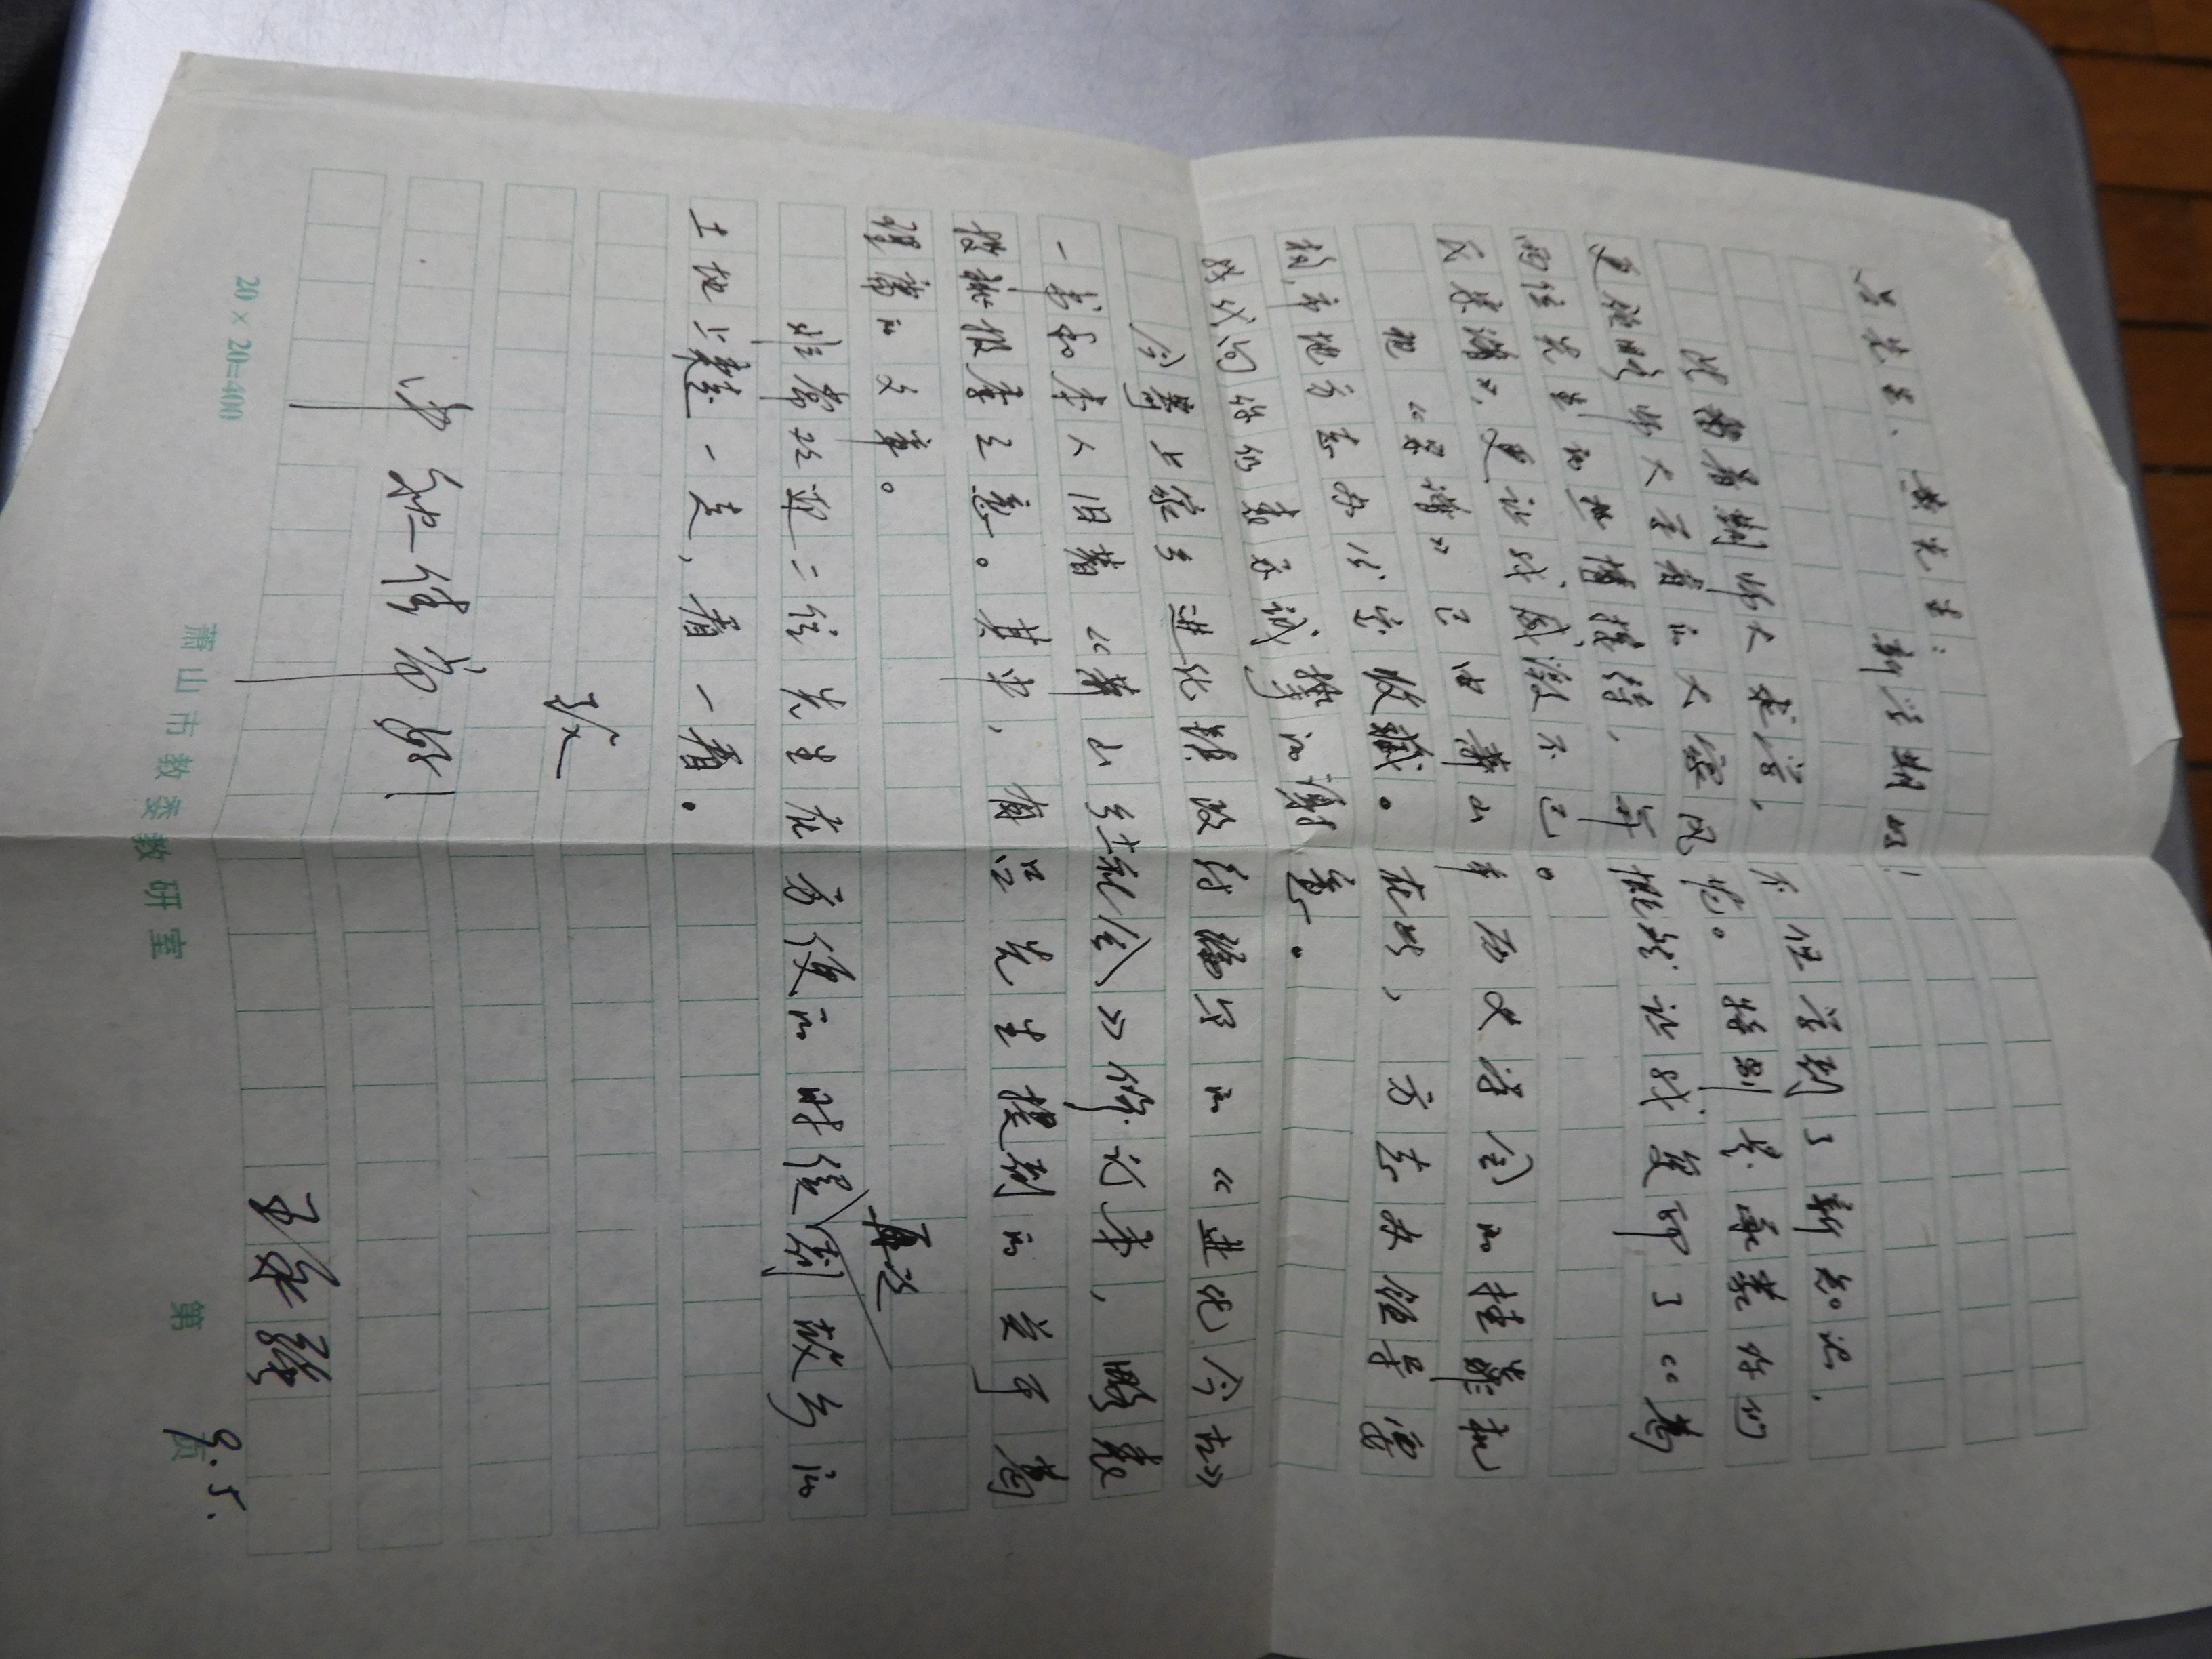 吕先生、黄先生：
新学期好！
此番暑期师大求学，不但学到了新知识，
更领略师大学者的大家风范。特别是承蒙你们
两位先生的热情接待，并慨然让我复印了《葛
氏宗谱》，更让我感激不已。
现《宗谱》已由萧山市历史学会的挂靠机
构，市地方志办公室收藏。在此，方志办领导要
我代向你们表示诚挚的谢意。
今寄上家乡进化镇政府编写的《进化今古》
一书和本人旧著《萧山乡土社会》修订本，略表
投桃报李之意。其中，有吕先生提到的关于葛
理庸的文章。
非常欢迎二位先生在方便的时候再次到故乡的
土地上走一走，看一看。
致
中秋佳节好！
王永强
9.5.
20×20=400
萧山市教委教研室
第 页